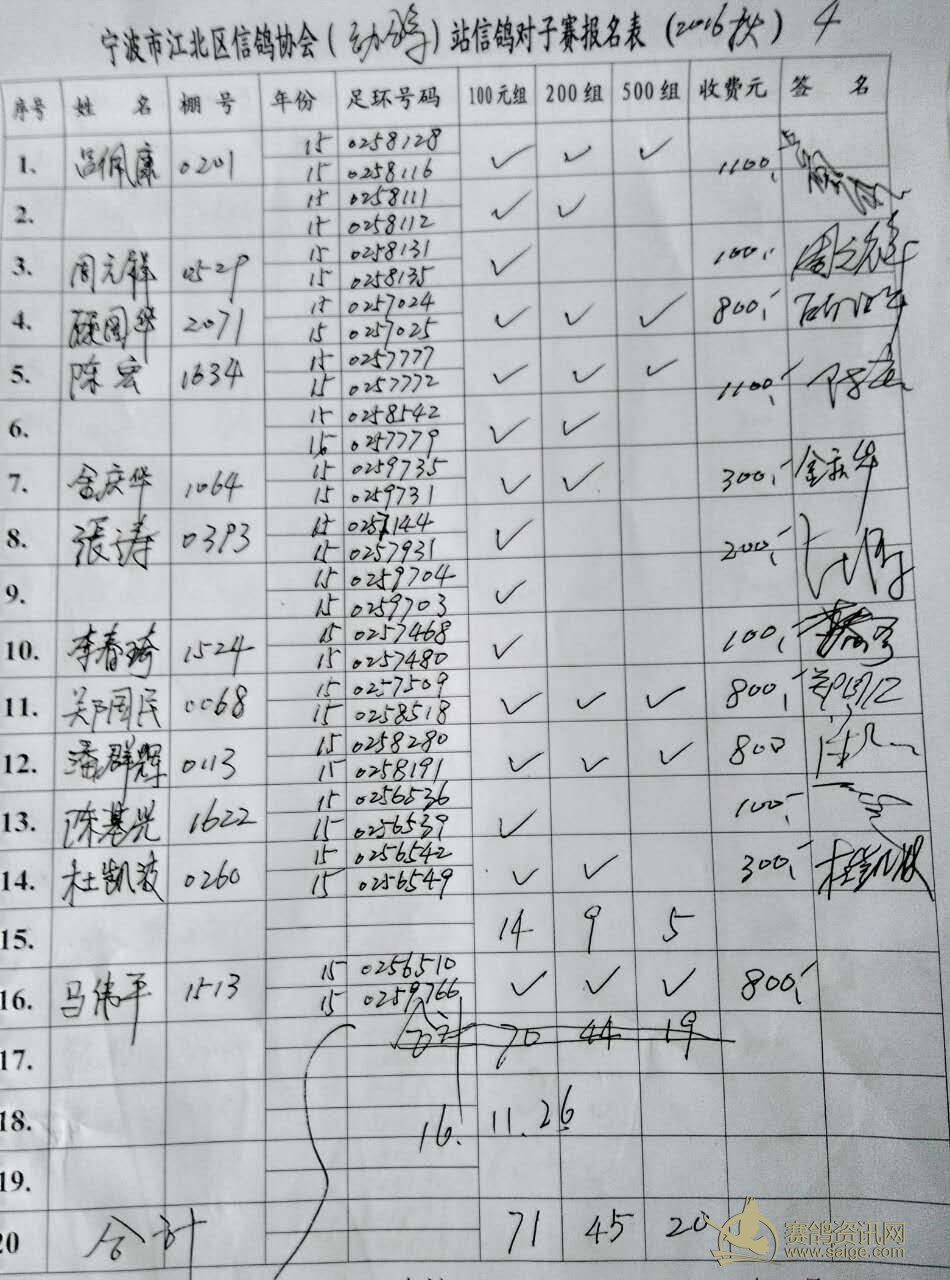 宁波市江北区信鸽协会（幼鸽）站信鸽对子赛报名表（2016秋）4
序号 姓 名 棚 号 年份 足环号码 100元组 200组 500组 收费元 签 名
15 0258128
1. 吕佩康 0201 ✓ ✓ ✓ 1100,
15 0258116
15 0258111
2. ✓ ✓
15 0258112
15 0258131
3. 周元祥 0529 ✓ 100,
15 0258135
15 0257024
4. 顾国华 2071 ✓ ✓ ✓ 800,
15 0257025
15 0257777
5. 陈宏 1634 ✓ ✓ ✓ 1100,
15 0257772
15 0258542
6. ✓ ✓
15 0257779
15 0259735
7. 金庆华 1064 ✓ ✓ 300, 金庆华
15 0259731
15
8. 張涛 0393 ✓ 200,
15 0257931
15 0259704
9. ✓
15 0259703
15 0257468
10. 李春琦 1524 ✓ 100,
15 0257480
15 0257509
11. 郑国民 0068 ✓ ✓ ✓ 800,
15 0258518
15 0258280
12. 潘群辉 0113 ✓ ✓ ✓ 800
15 0258191
15 0256536
13. 陈基光 1622 ✓ 100,
15 0256539
15 0256542
14. 杜凯波 0260 ✓ ✓ 300, 杜凯波
15 0256549
15. 14 9 5
15 0256510
16. 马伟平 1513 ✓ ✓ ✓ 800,
15 0259766
合计 70 44 19
17.
18. 16. 11. 26
19.
20 合计 71 45 20
赛鸽资讯网
www.saige.com